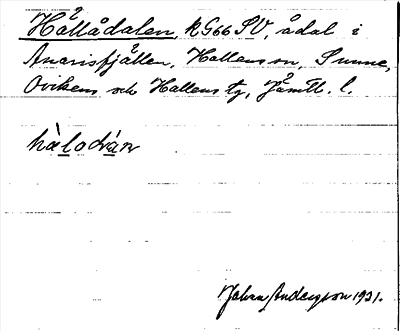 Hållådalen, RG66 SV, ådal i
Anarisfjällen, Hallens sn, Sunne,
Ovikens och Hallens tg, Jämtl. l.
hàlodván
Johan Anderson 1931.